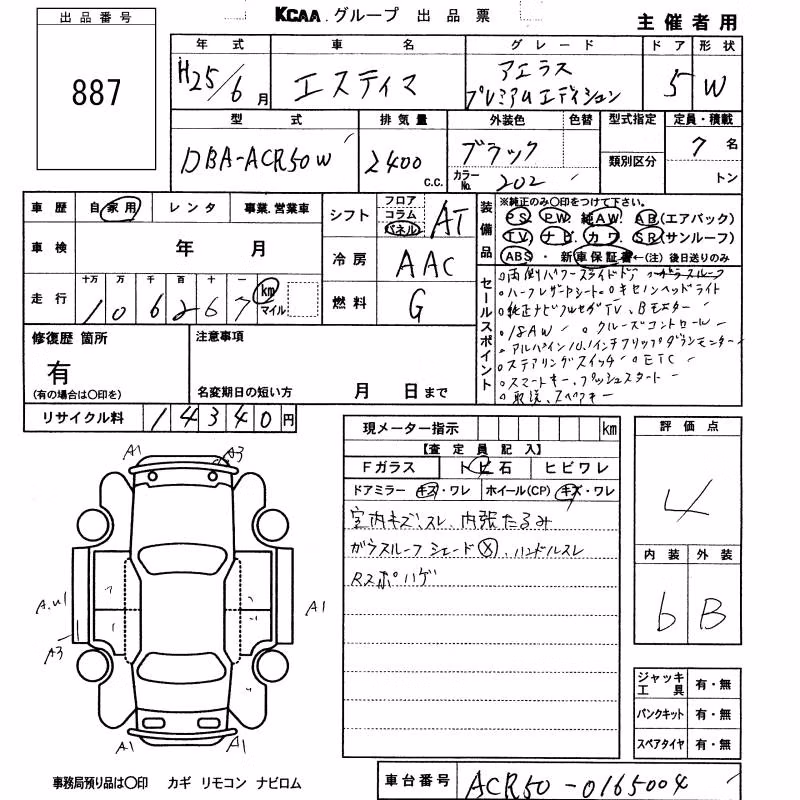 KCAA.グループ 出品票
出品番号
887
主催者用
年式 車名 グレード ドア 形状
H25/6月 エスティマ アエラス プレミアムエディション 5 W
型式 排気量 外装色 色替 型式指定 定員・積載
DBA-ACR50W 2400 c.c. ブラック 7名
カラーNo. 202 類別区分 トン
車歴 自家用 レンタ 事業.営業車
車検 年 月
走行 十万 万 千 百 十 一
1 0 6 2 6 7 km マイル
シフト フロア コラム パネル AT
冷房 AAC
燃料 G
装備品 ※純正のみ○印をつけて下さい。
PS. PW. 純AW. AB.(エアバック)
TV. ナビ. カワ. SR(サンルーフ)
ABS・新車保証書←(注)後日送りのみ
セールスポイント
○両側パワースライドドア ガラスルーフ
○ハーフレザーシート ○キセノンヘッドライト
○純正ナビフルセグTV、Bモニター
○18AW ○クルーズコントロール
○アルパイン10.1インチフリップダウンモニター
○ステアリングスイッチ ○ETC
○スマートキー、プッシュスタート
○取説、スペアキー
修復歴 箇所
有
(有の場合は○印を)
注意事項
名変期日の短い方 月 日まで
リサイクル料 14340円
現メーター指示 km
【査定員記入】
Fガラス トビ石 ヒビワレ
ドアミラー キズ・ワレ ホイール(CP) キズ・ワレ
室内キズ、スレ、内張たるみ
ガラスルーフシェードⓧ、ハンドルスレ
Rスポハゲ
評価点
4
内装 外装
b B
ジャッキ工具 有・無
パンクキット 有・無
スペアタイヤ 有・無
A1 A3
A.U1 A1
A3
A1 A1
事務局預り品は○印 カギ リモコン ナビロム
車台番号 ACR50-0165004